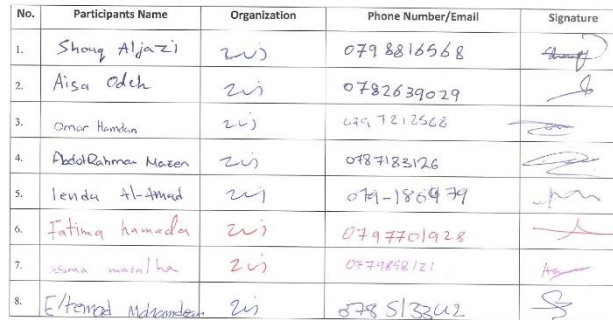 No. Participants Name Organization Phone Number/Email Signature
1. Shouq Aljazi ZUJ 0798816568
2. Aisa Odeh ZUJ 0782639029
3. Omar Hamdan ZUJ 079 7212568
4. AbdolRahman Mazen ZUJ 0787183126
5. Al-Amad ZUJ 079-186979
6. Fatima hamada ZUJ 0797701928
7. masalha ZUJ 0779858121
8. ZUJ 0785133242